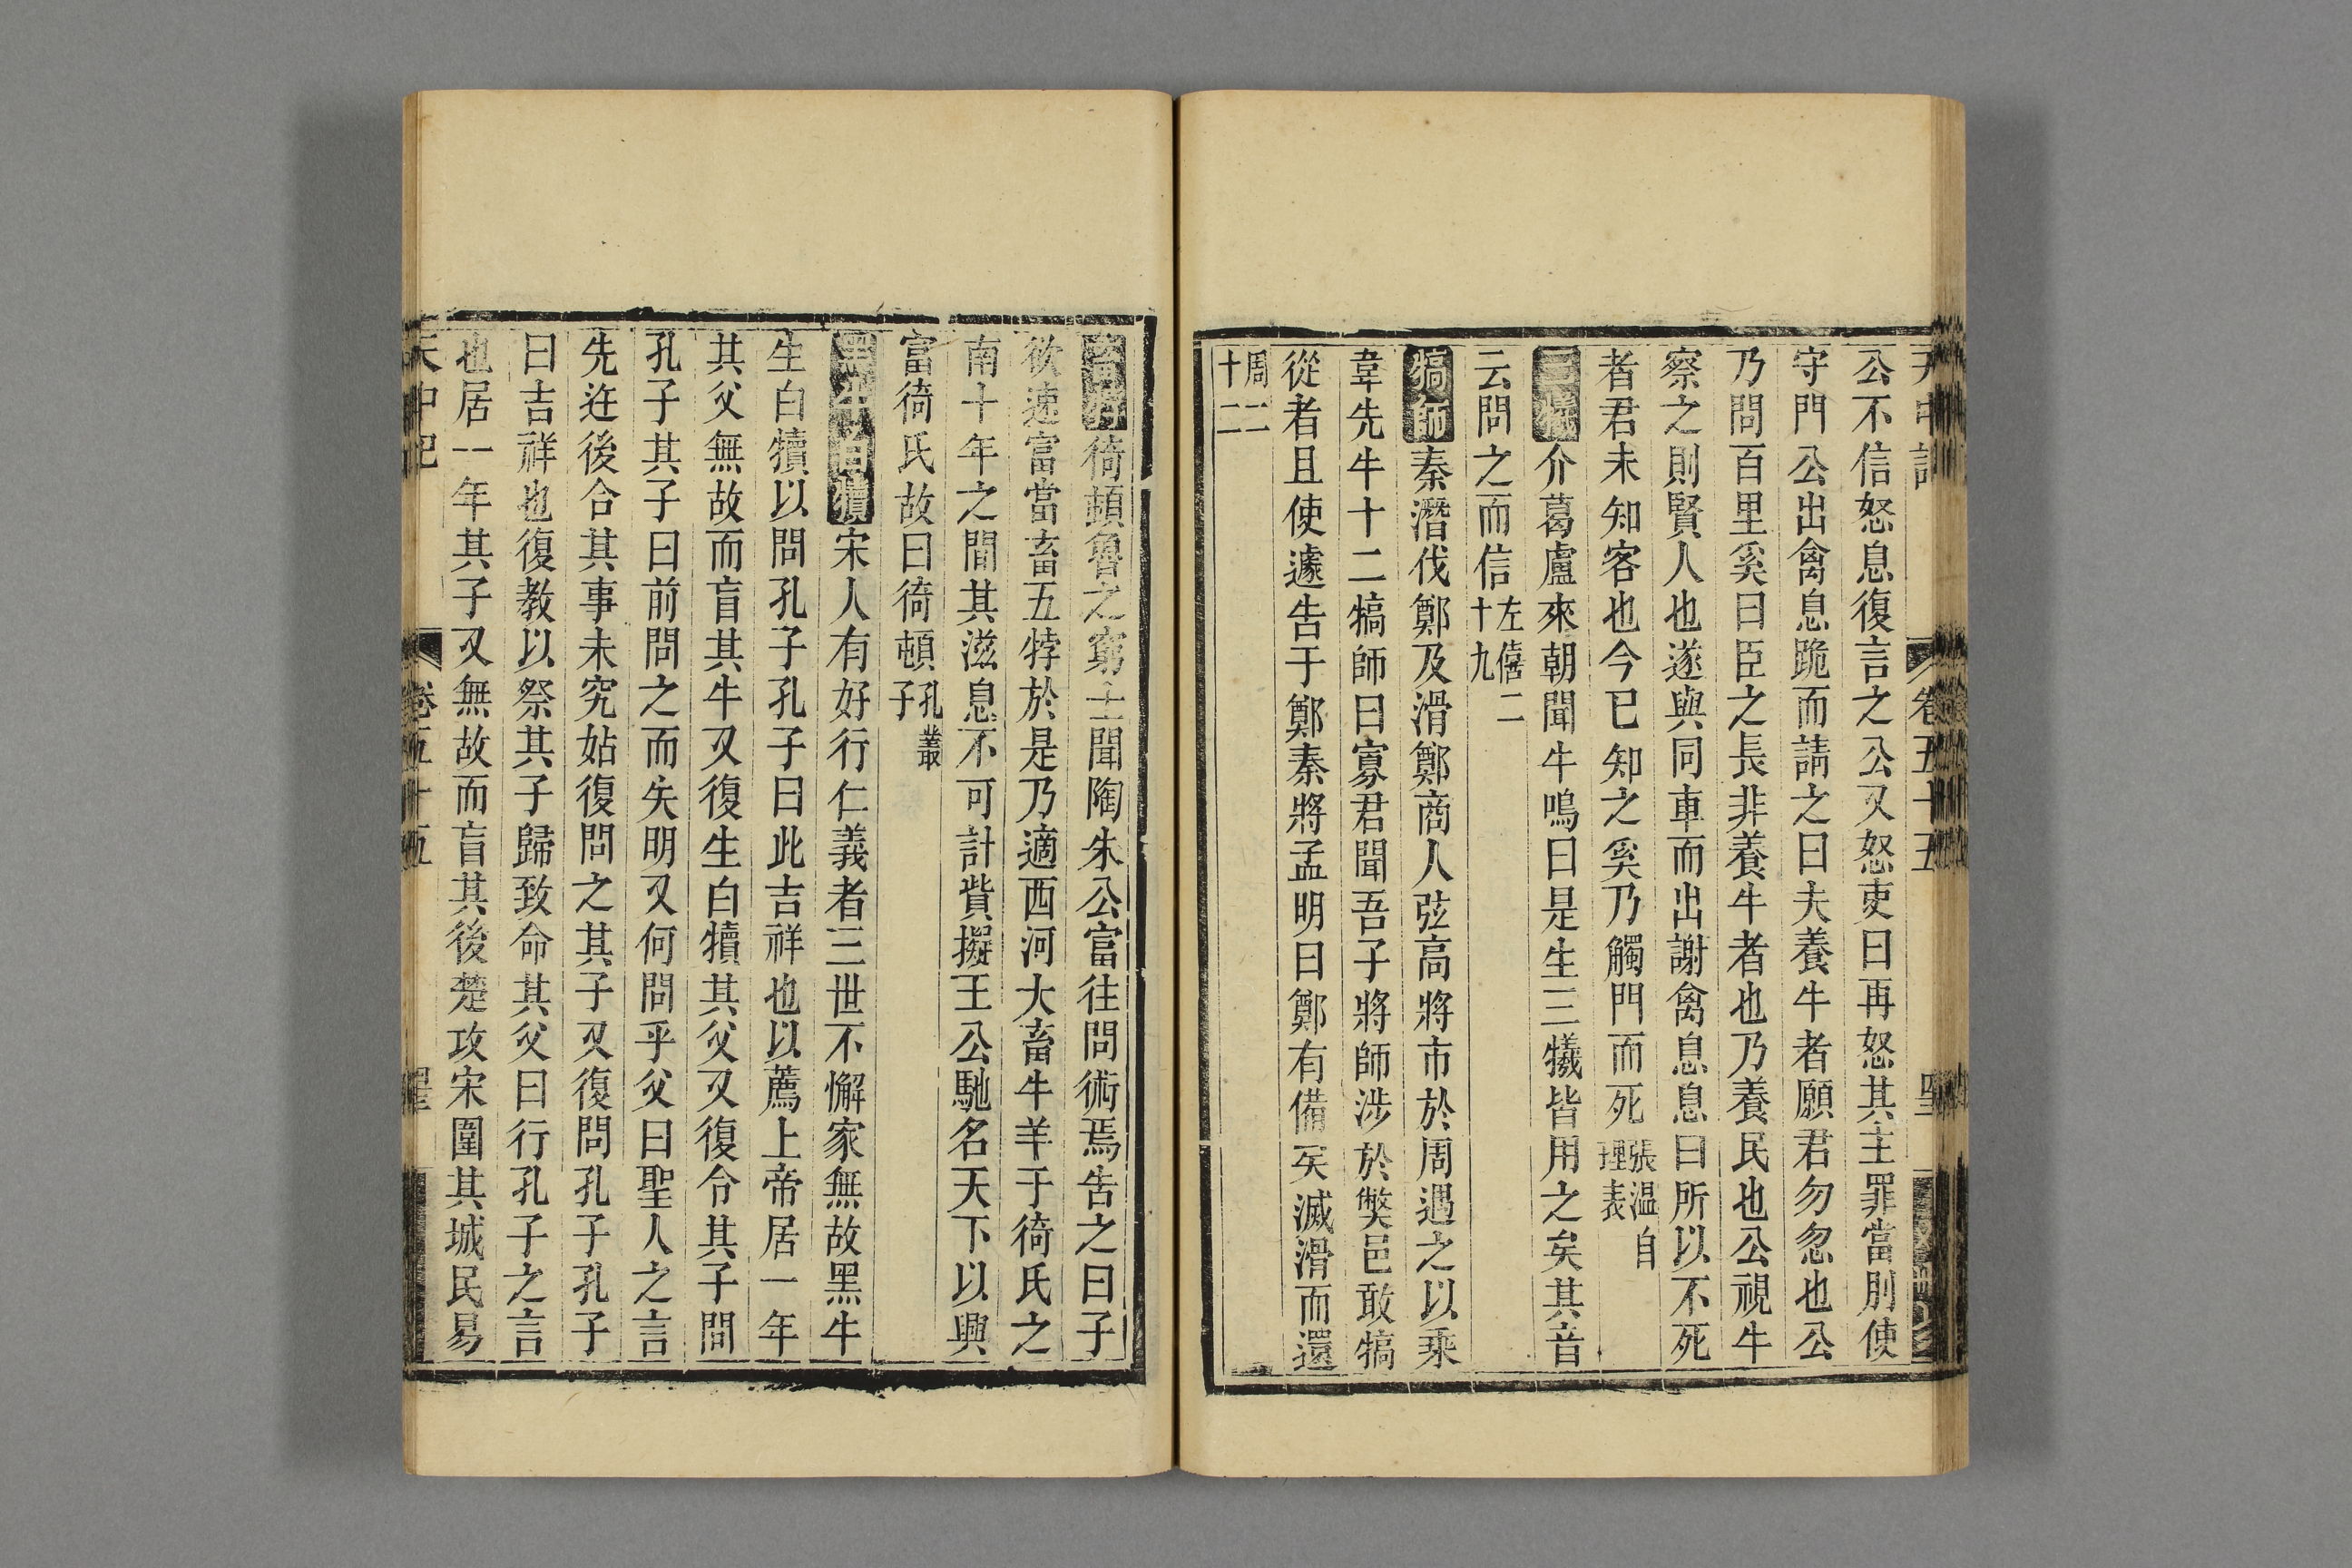 天中記 卷五十五
公不信怒息復言之公又怒吏曰再怒其主罪當刖使
守門公出禽息跪而請之曰夫養牛者願君勿忽也公
乃問百里奚曰臣之長非養牛者也乃養民也公視牛
察之則賢人也遂與同車而出謝禽息息曰所以不死
者君未知客也今已知之奚乃觸門而死張温自理表
三犧介葛盧來朝聞牛鳴曰是生三犧皆用之矣其音
云問之而信左僖二十九
犒師秦潛伐鄭及滑鄭商人弦高將市於周遇之以乘
韋先牛十二犒師曰寡君聞吾子將師涉於獘邑敢犒
從者且使遽告于鄭秦將孟明曰鄭有備矣滅滑而還
周二十二
猗頓魯之窮士聞陶朱公富往問術焉告之曰子
欲速富當畜五牸於是乃適西河大畜牛羊于猗氏之
南十年之間其滋息不可計貲擬王公馳名天下以興
富猗氏故曰猗頓孔叢子
黑牛白犢宋人有好行仁義者三世不懈家無故黑牛
生白犢以問孔子孔子曰此吉祥也以薦上帝居一年
其父無故而盲其牛又復生白犢其父又復令其子問
孔子其子曰前問之而失明又何問乎父曰聖人之言
先迕後合其事未究姑復問之其子又復問孔子孔子
曰吉祥也復教以祭其子歸致命其父曰行孔子之言
也居一年其子又無故而盲其後楚攻宋圍其城民易
天中記 卷五十五